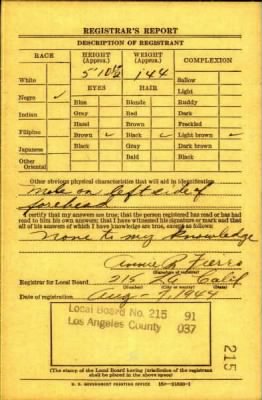 REGISTRAR'S REPORT
DESCRIPTION OF REGISTRANT
RACE HEIGHT (Approx.) WEIGHT (Approx.) COMPLEXION
5' 10½ 144
White Sallow
EYES HAIR Light
Negro ✓ Blue Blonde Ruddy
Indian Gray Red Dark
Hazel Brown Freckled
Filipino Brown ✓ Black ✓ Light brown ✓
Japanese Black Gray Dark brown
Other Oriental Bald Black
Other obvious physical characteristics that will aid in identification
Mole on left side of
forehead
I certify that my answers are true; that the person registered has read or has had
read to him his own answers; that I have witnessed his signature or mark and that
all of his answers of which I have knowledge are true, except as follows:
None to my knowledge
Annie R. Fierro
(Signature of registrar)
Registrar for Local Board 215 Calif
Date of registration Aug - 7 1944
Local Board No. 215 91
Los Angeles County 037
215
(The stamp of the Local Board having jurisdiction of the registrant
shall be placed in the above space)
U. S. GOVERNMENT PRINTING OFFICE